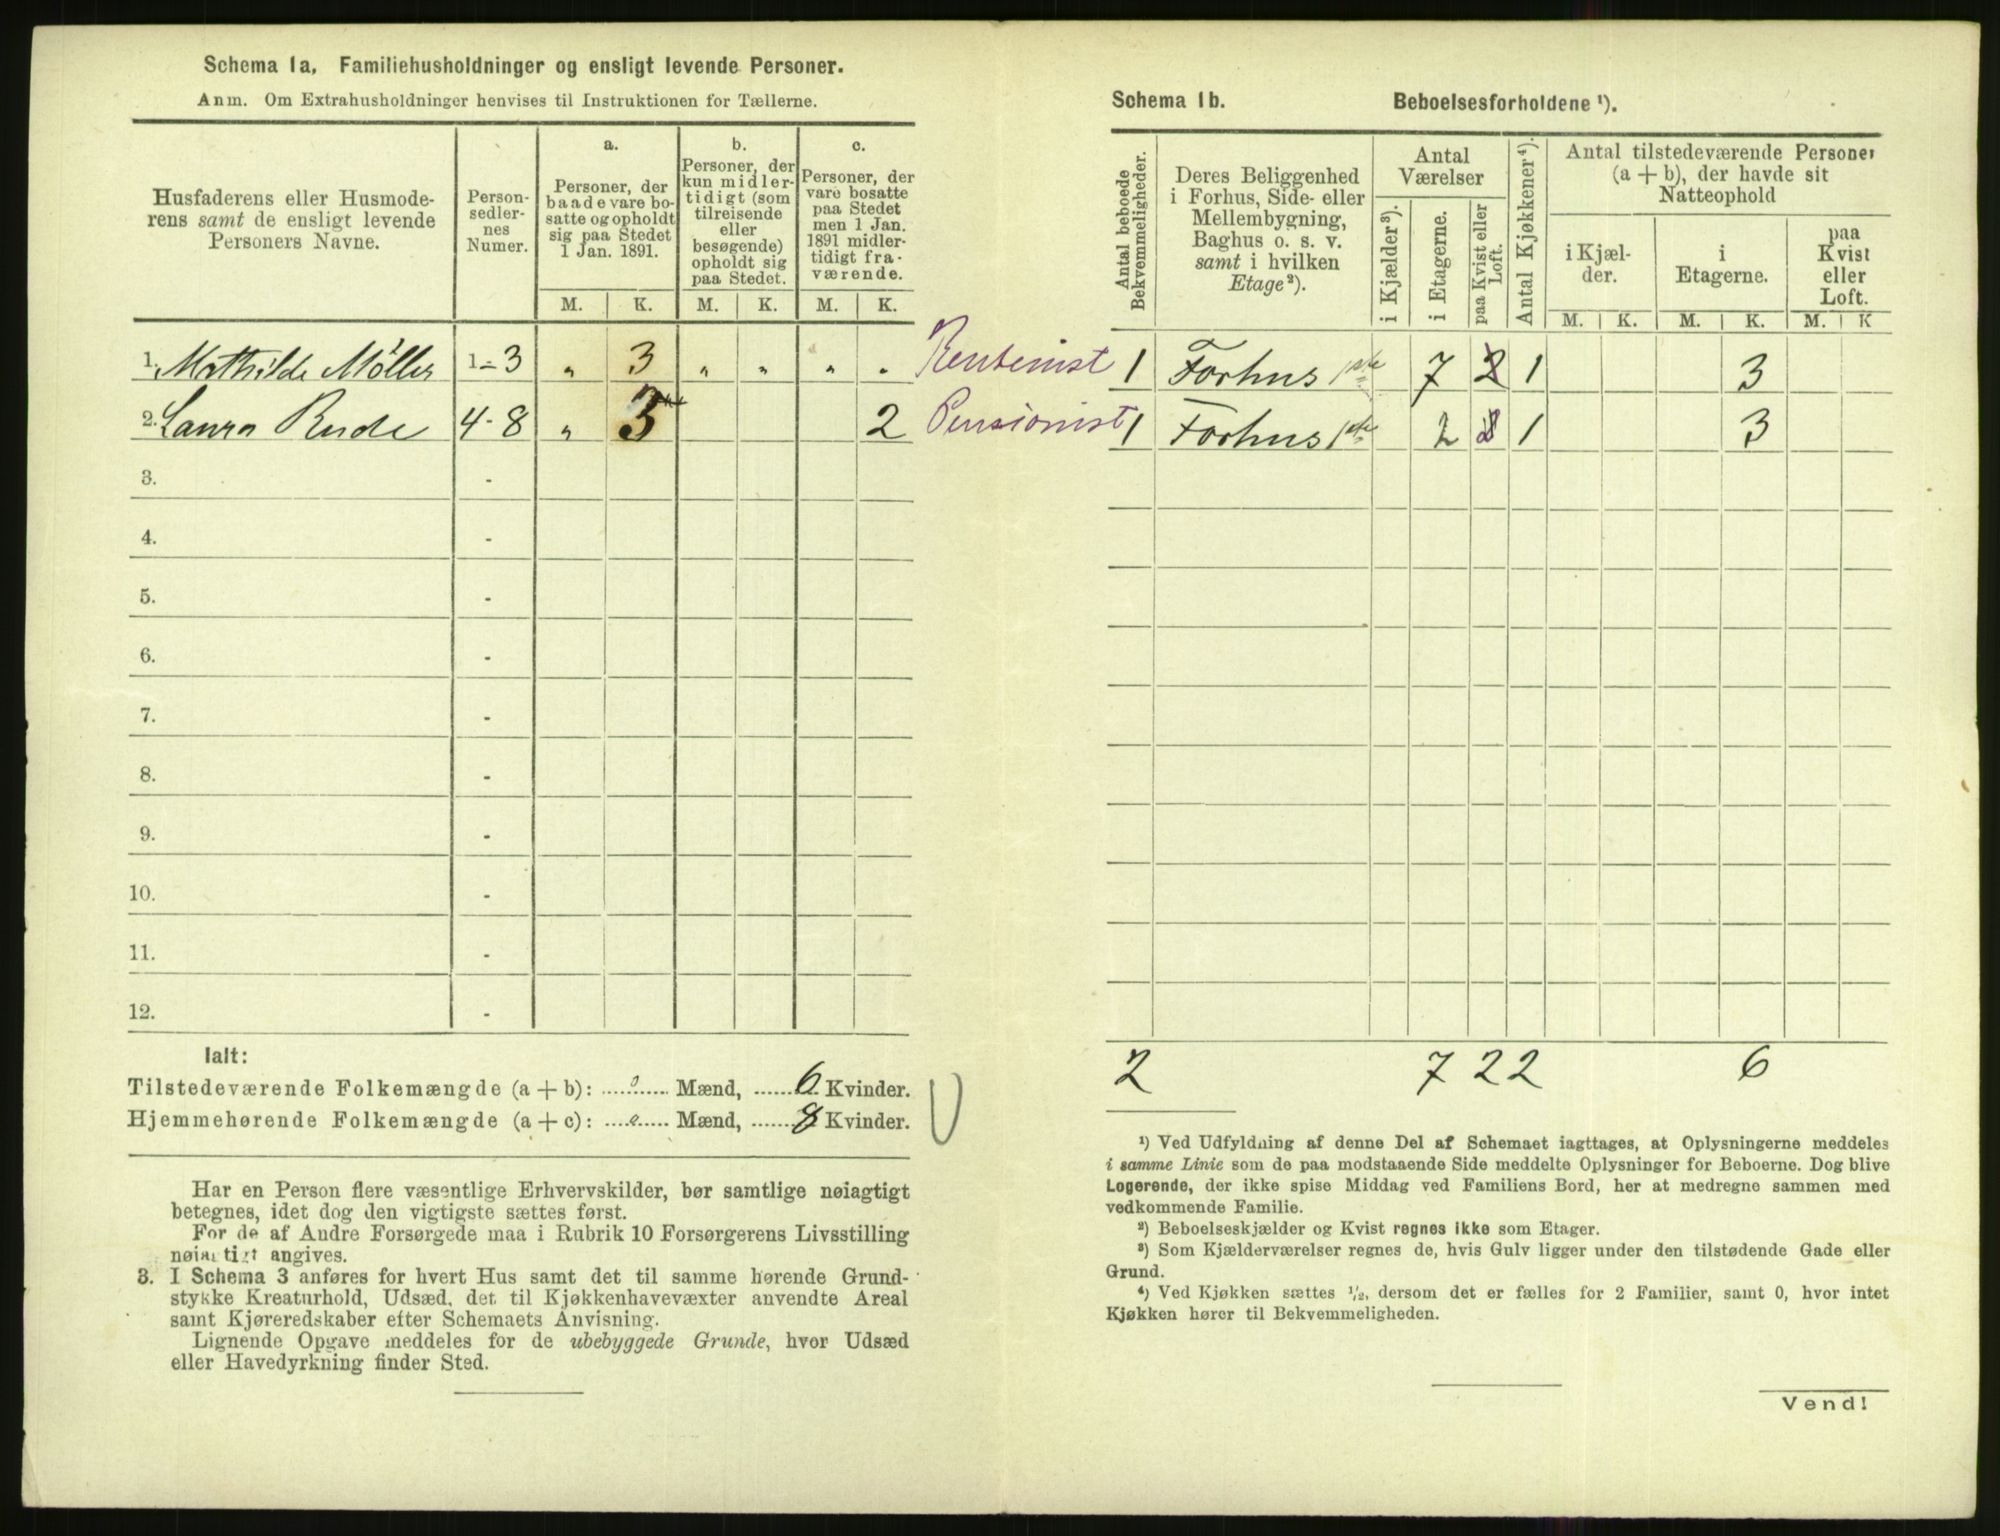 Schema 1a. Familiehusholdninger og ensligt levende Personer.
Anm. Om Extrahusholdninger henvises til Instruktionen for Tællerne.
Husfaderens eller Husmode-
rens samt de ensligt levende
Personers Navne.
Person-
sedler-
nes
Numer.
a.
Personer, der
baade vare bo-
satte og opholdt
sig paa Stedet
1 Jan. 1891.
b.
Personer, der
kun midler-
tidigt (som
tilreisende
eller
besøgende)
opholdt sig
paa Stedet.
c.
Personer, der
vare bosatte
paa Stedet
men 1 Jan.
1891 midler-
tidigt fra-
værende.
M. K. M. K. M. K.
1. Mathilde Møller 1-3 „ 3 „ „ „ „ Rentenist
2. Laura Rude 4-8 „ 3 2 Pensionist
3. -
4. -
5. -
6. -
7. -
8. -
9. -
10. -
11. -
12. -
Ialt:
Tilstedeværende Folkemængde (a + b): 0 Mænd, 6 Kvinder.
Hjemmehørende Folkemængde (a + c): 0 Mænd, 8 Kvinder.
Har en Person flere væsentlige Erhvervskilder, bør samtlige nøiagtigt
betegnes, idet dog den vigtigste sættes først.
For de af Andre Forsørgede maa i Rubrik 10 Forsørgerens Livsstilling
nøiagtigt angives.
3. I Schema 3 anføres for hvert Hus samt det til samme hørende Grund-
stykke Kreaturhold, Udsæd, det til Kjøkkenhavevæxter anvendte Areal
samt Kjøreredskaber efter Schemaets Anvisning.
Lignende Opgave meddeles for de ubebyggede Grunde, hvor Udsæd
eller Havedyrkning finder Sted.
Schema 1b. Beboelsesforholdene ¹).
Antal beboede
Bekvemmeligheder.
Deres Beliggenhed
i Forhus, Side- eller
Mellembygning,
Baghus o. s. v.
samt i hvilken
Etage²).
Antal
Værelser
i Kjælder³).
i Etagerne.
paa Kvist eller
Loft.
Antal Kjøkkener⁴).
Antal tilstedeværende Personer
(a + b), der havde sit
Natteophold
i Kjæl-
der.
i
Etagerne.
paa
Kvist
eller
Loft.
M. K. M. K. M. K
1 Forhus 1ste 7 2 1 3
1 Forhus 1ste 2 1 3
2 7 2 2 6
¹) Ved Udfyldning af denne Del af Schemaet iagttages, at Oplysningerne meddeles
i samme Linie som de paa modstaaende Side meddelte Oplysninger for Beboerne. Dog blive
Logerende, der ikke spise Middag ved Familiens Bord, her at medregne sammen med
vedkommende Familie.
²) Beboelseskjælder og Kvist regnes ikke som Etager.
³) Som Kjælderværelser regnes de, hvis Gulv ligger under den tilstødende Gade eller
Grund.
⁴) Ved Kjøkken sættes ½, dersom det er fælles for 2 Familier, samt 0, hvor intet
Kjøkken hører til Bekvemmeligheden.
Vend!